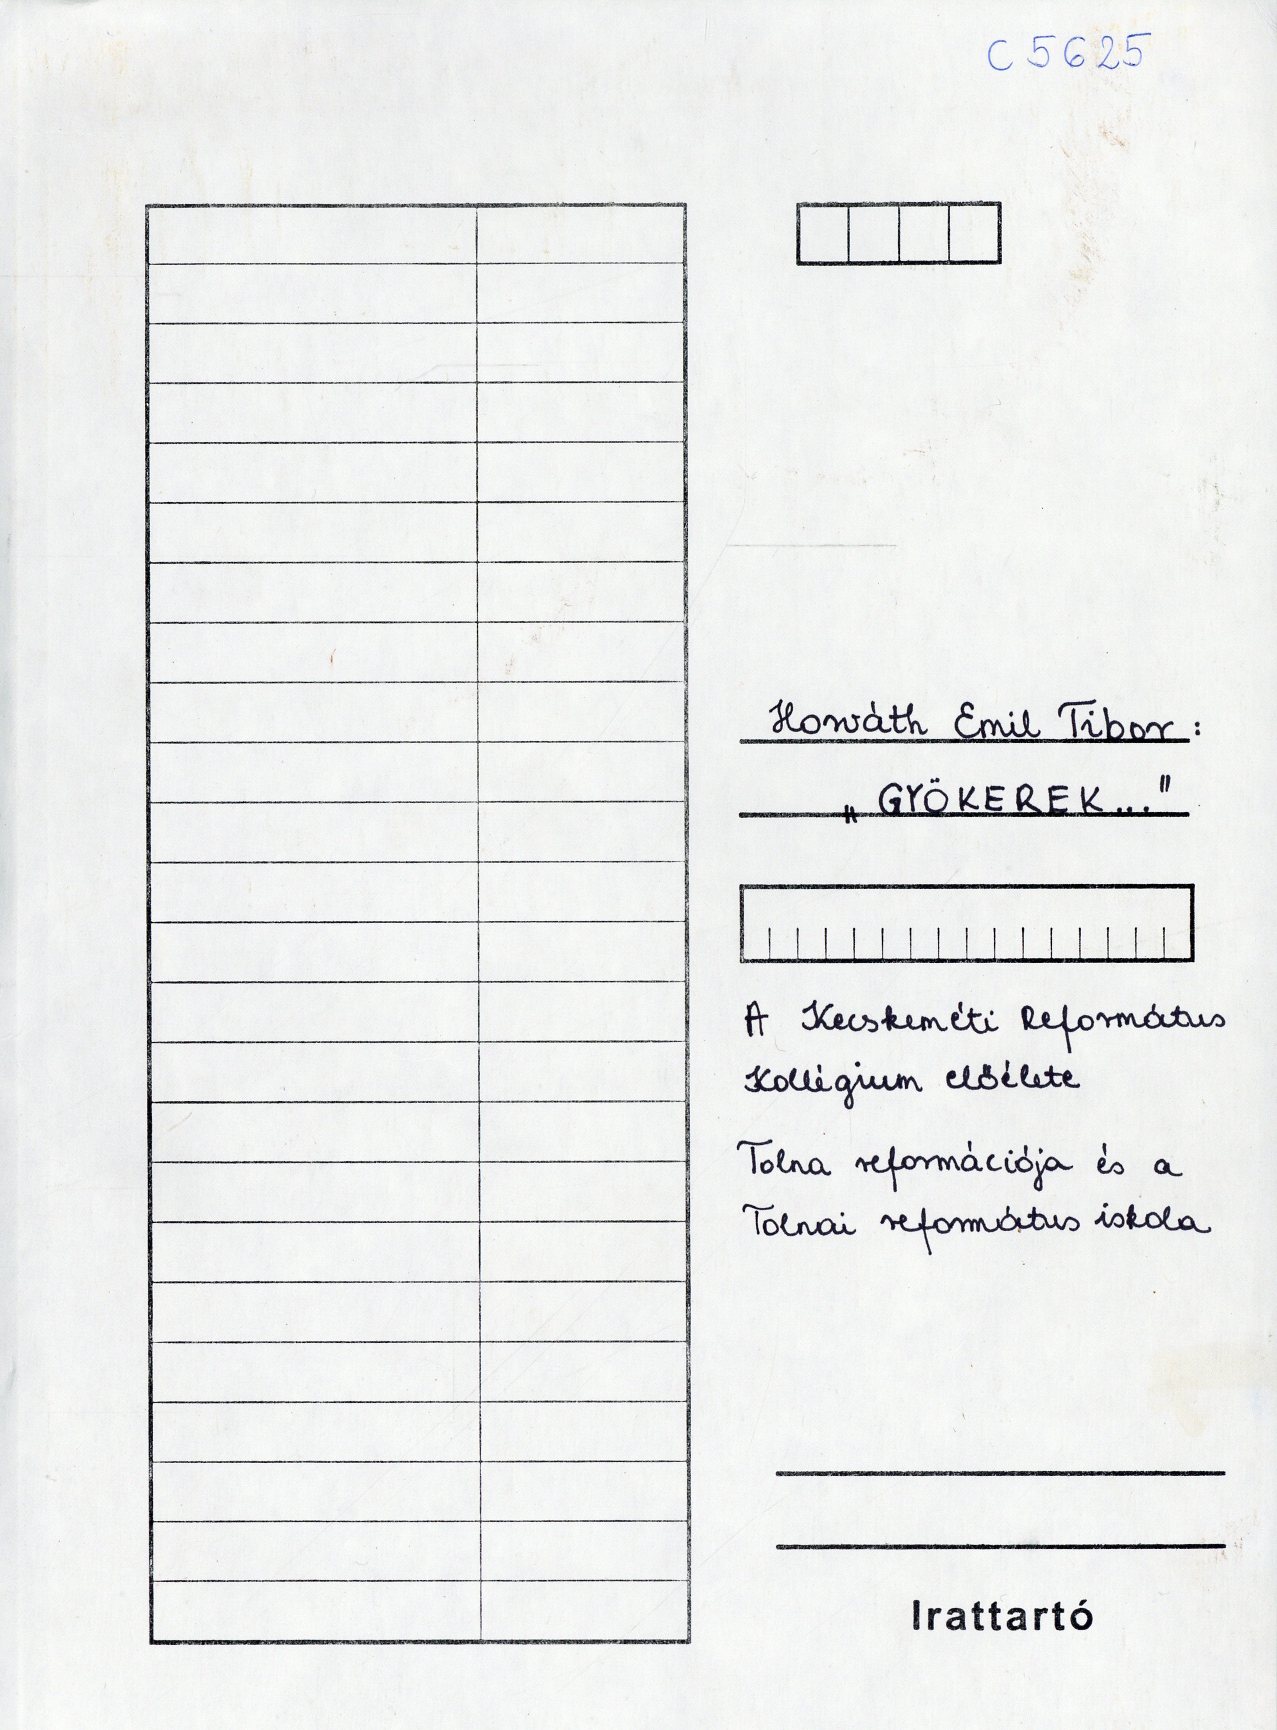 C 5625
Horváth Emil Tibor:
„GYÖKEREK..."
A Kecskeméti Református
Kollégium előélete
Tolna reformációja és a
Tolnai református iskola
Irattartó